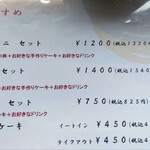 すめ
ニ セット ¥1200（税込1320
＋お好きな手作りケーキ＋お好きなドリンク
セット ¥1400（税込154
＋お好きな手作りケーキ＋お好きなドリンク
セット ¥750（税込825円）
＋お好きなドリンク
ケーキ イートイン ¥450（税込4
テイクアウト ¥450（税込4